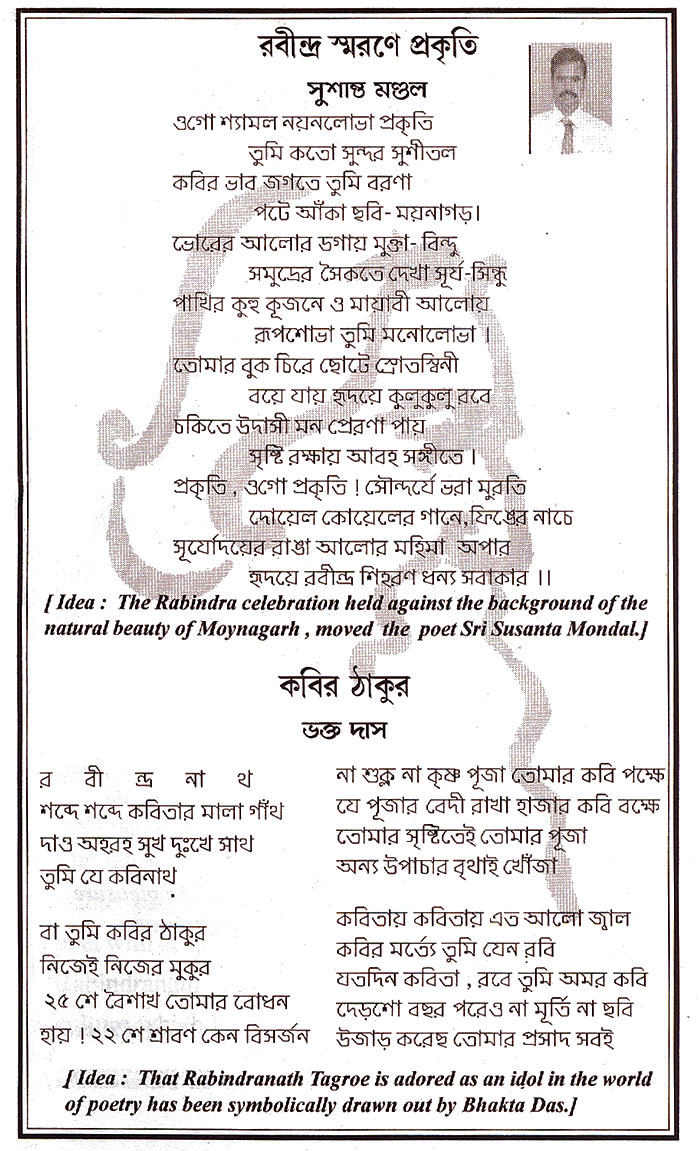 রবীন্দ্র স্মরণে প্রকৃতি
সুশান্ত মণ্ডল
ওগো শ্যামল নয়নলোভা প্রকৃতি
তুমি কতো সুন্দর সুশীতল
কবির ভাব জগতে তুমি বরণা
পটে আঁকা ছবি- ময়নাগড়।
ভোরের আলোর ডগায় মুক্তা- বিন্দু
সমুদ্রের সৈকতে দেখা সূর্য-সিন্ধু
পাখির কুহু কূজনে ও মায়াবী আলোয়
রূপশোভা তুমি মনোলোভা ।
তোমার বুক চিরে ছোটে স্রোতস্বিনী
বয়ে যায় হৃদয়ে কুলুকুলু রবে
চকিতে উদাসী মন প্রেরণা পায়
সৃষ্টি রক্ষায় আবহ সঙ্গীতে ।
প্রকৃতি , ওগো প্রকৃতি ! সৌন্দর্যে ভরা মুরতি
দোয়েল কোয়েলের গানে,ফিঙের নাচে
সূর্যোদয়ের রাঙা আলোর মহিমা অপার
হৃদয়ে রবীন্দ্র শিহরণ ধন্য সবাকার ।।
[ Idea : The Rabindra celebration held against the background of the
natural beauty of Moynagarh , moved the poet Sri Susanta Mondal.]
কবির ঠাকুর
ভক্ত দাস
র বী ন্দ্র না থ
শব্দে শব্দে কবিতার মালা গাঁথ
দাও অহরহ সুখ দুঃখে সাথ
তুমি যে কবিনাথ
বা তুমি কবির ঠাকুর
নিজেই নিজের মুকুর
২৫ শে বৈশাখ তোমার বোধন
হায় ! ২২ শে শ্রাবণ কেন বিসর্জন
না শুক্ল না কৃষ্ণ পূজা তোমার কবি পক্ষে
যে পূজার বেদী রাখা হাজার কবি বক্ষে
তোমার সৃষ্টিতেই তোমার পূজা
অন্য উপাচার বৃথাই খোঁজা
কবিতায় কবিতায় এত আলো জ্বাল
কবির মর্ত্যে তুমি যেন রবি
যতদিন কবিতা , রবে তুমি অমর কবি
দেড়শো বছর পরেও না মূর্তি না ছবি
উজাড় করেছ তোমার প্রসাদ সবই
[ Idea : That Rabindranath Tagroe is adored as an idol in the world
of poetry has been symbolically drawn out by Bhakta Das.]